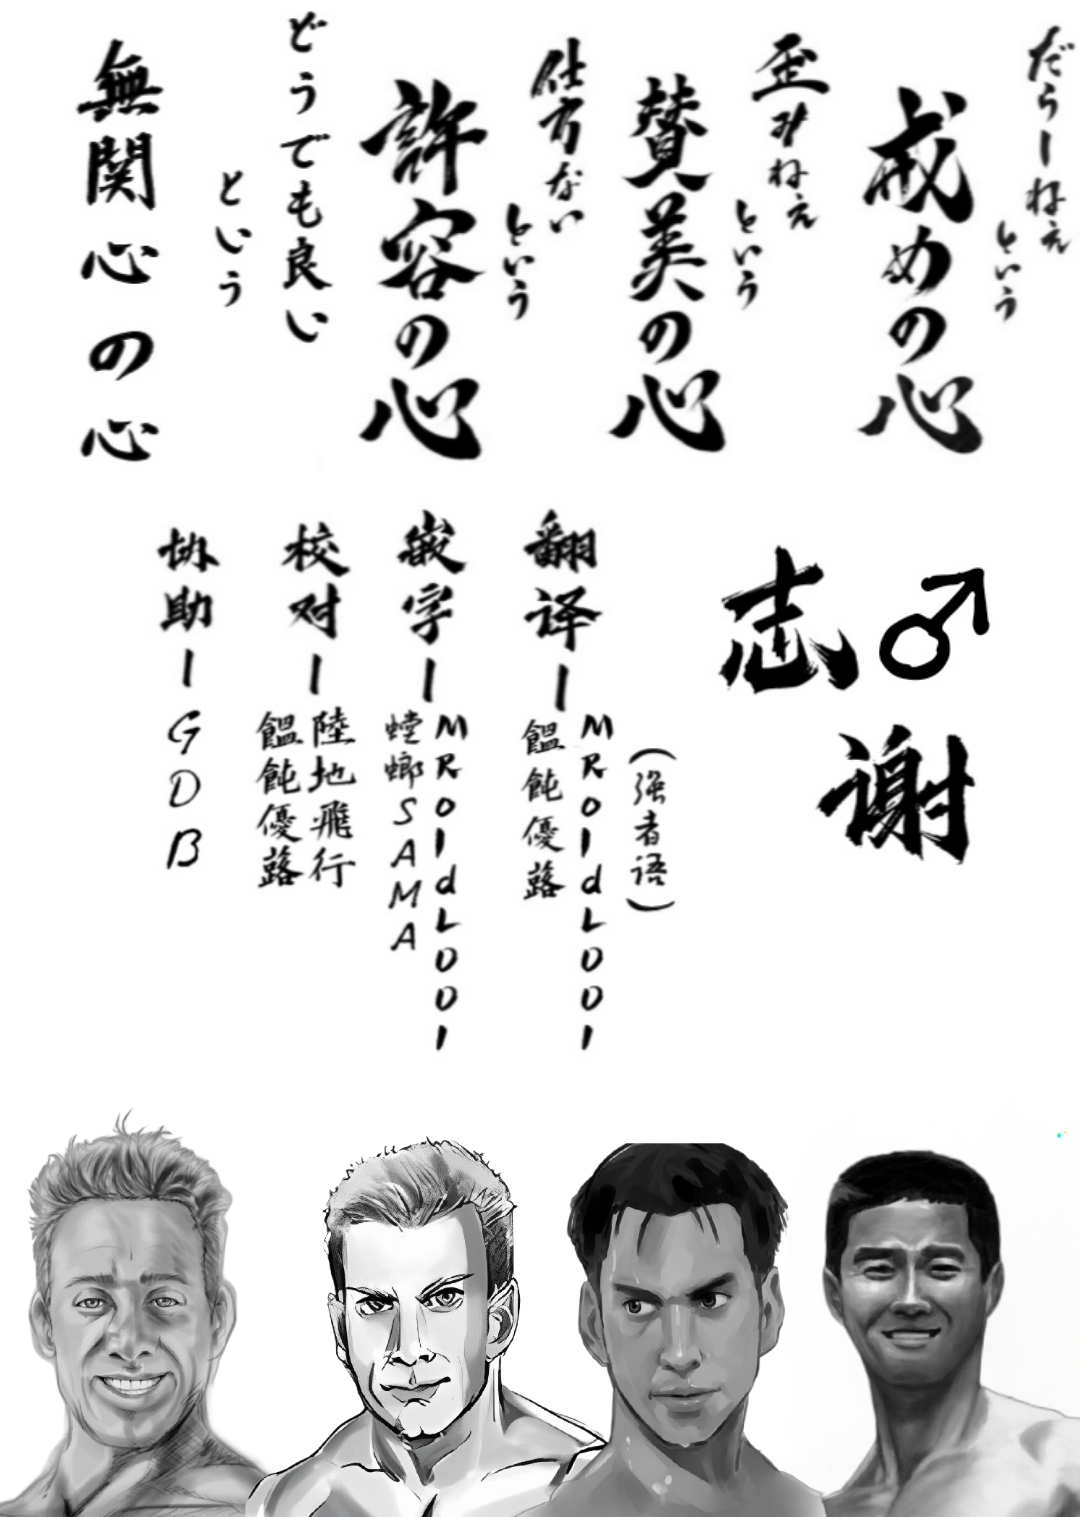 だらーねぇ
という
戒めの心
歪みねぇ
という
賛美の心
仕方ない
という
許容の心
どうでも良い
という
無関心の心
志♂
谢
(强者语)
翻译ー
MRoIdLDDI
饂飩優蕗
嵌字ー
MRoIdLDDI
螳螂SAMA
校对ー
陸地飛行
饂飩優蕗
协助ー
GDB